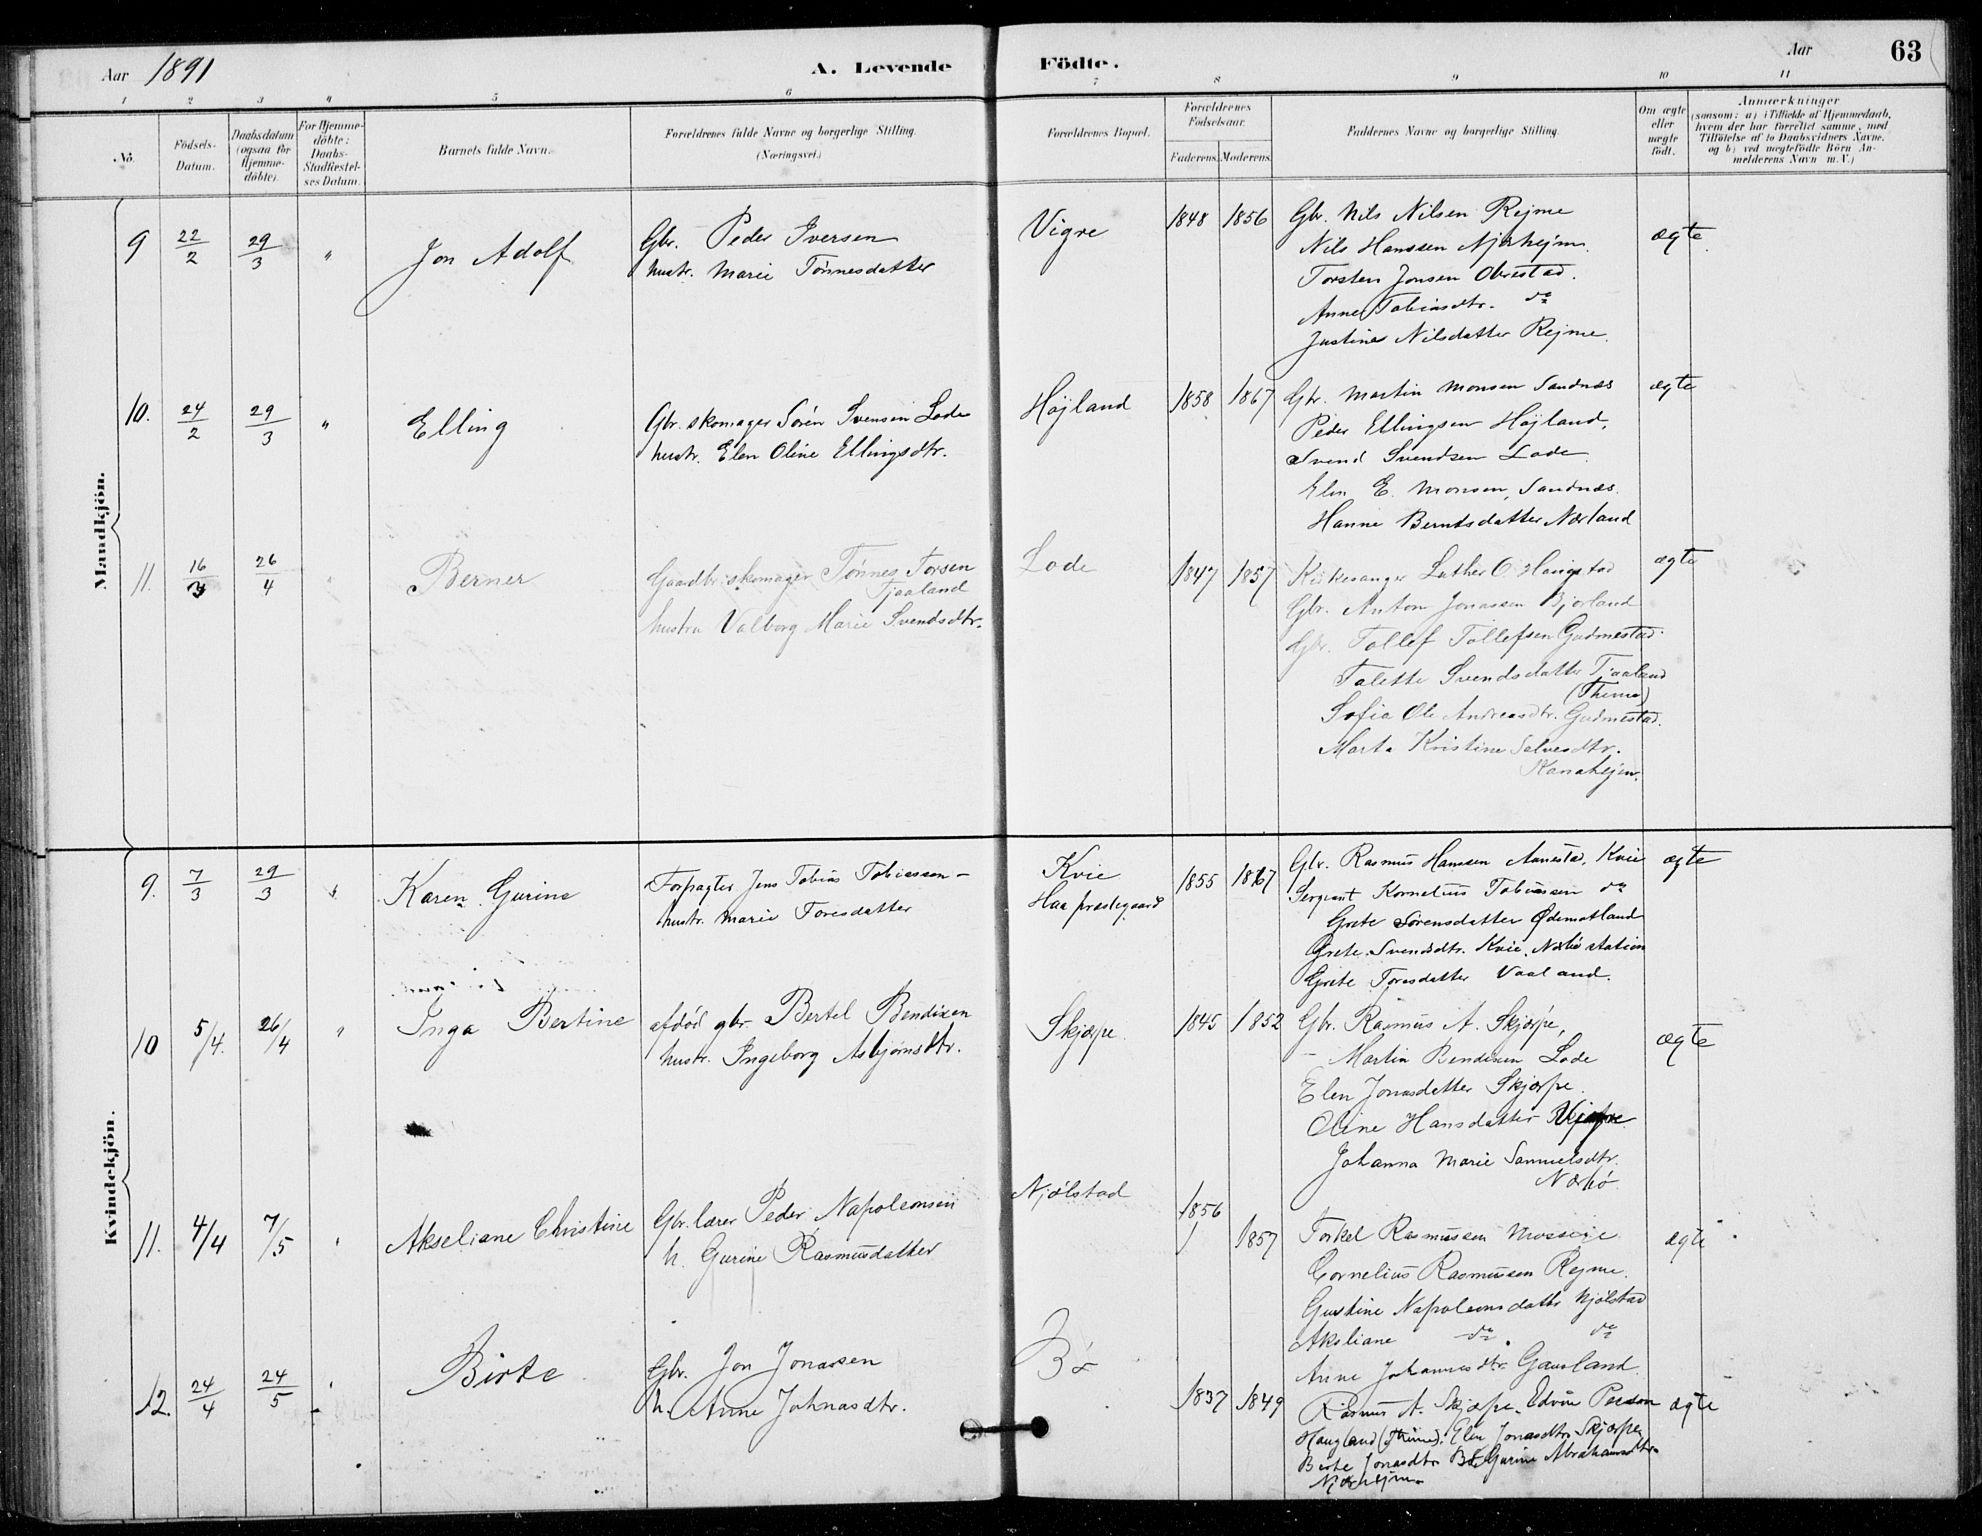 Aar 1891 A. Levende Födte. Aar 63
1 2 3 4 5 6 7 8 9 10 11
No.
Födsels-Datum.
Daabsdatum (ogsaa for Hjemme-döbte).
For Hjemme-döbte: Daabs-Stadfæstel-ses Datum.
Barnets fulde Navn.
Forældrenes fulde Navne og borgerlige Stilling. (Næringsvei.)
Forældrenes Bopæl.
Forældrenes Födselsaar.
Faderens. Moderens.
Faddernes Navne og borgerlige Stilling.
Om ægte eller uægte födt.
Anmærkninger
(saasom: a) i Tilfælde af Hjemmedaab, hvem der har forrettet samme, med Tilföielse af to Daabsvidners Navne. og b) ved uægtefödte Börn An-melderens Navn m. V.)
Mandkjön.
9 22/2 29/3 " Jon Adolf
Gbr. Peder Iversen
hustr. Marie Tønnesdatter
Vigre 1848 1856
Gbr. Nils Nilsen Rejme
Nils Hanssen Njærhejm
Torsten Jonsen Obrestad.
Anne Tobiasdtr. do
Justine Nilsdatter Rejme.
ægte
10. 24/2 29/3 " Elling
Gbr. skomager Sören Svensen Lode
hustr. Elen Oline Ellingsdtr.
Højland 1858 1867
Gbr. Martin Monsen Sandnæs
Peder Ellingsen Højland.
Svend Svendsen Lode.
Elen E. Monsen, Sandnæs.
Hanne Berntsdatter Nærland
ægte
11. 16/3 26/4 " Berner
Gaardbr. skomager Tønnes Torsen
Tjaaland
hustru Valborg Marie Svendsdtr.
Lode 1847 1857
Kirkesanger Luther O. Haugstad
Gbr. Anton Jonassen Bjorland
Gbr. Tollef Tollefsen Gudmestad.
Talette Svendsdatter Tjaaland
(Thime)
Sofie Ole Andreasdtr. Gudmestad.
Marta Kristine Salvesdtr.
ægte
Kvindekjön.
9. 7/3 29/3 " Karen Gurine
Forpagter Jens Tobias Tobiassen -
hustr. Marie Toresdatter
Kvie
Haa præstegaard
1855 1867
Gbr. Rasmus Hanssen Aanestad, Kvie
Sergeant Kornelius Tobiassen do
Grete Sørensdatter Ødemotland
Grete Svendsdtr. Kvie, Nærbø station
Grete Toresdatter Vaaland.
ægte
10 5/4. 26/4 " Inga Bertine
afdød gbr. Bertel Bendixen
hustr. Ingeborg Asbjørnsdtr.
Skjærpe. 1845 1852
Gbr. Rasmus A. Skjærpe,
- Martin Bendixen Lode
Elen Jonasdatter Skjærpe.
Oline Hansdatter
Johanna Marie Samuelsdtr.
Nærbø.
ægte
11. 4/4 7/5 " Akseliane Christine
Gbr. lærer Peder Napoleonsen
h. Gurine Rasmusdatter
Njølstad 1856 1857
Torkel Rasmussen Mossige
Cornelius Rasmussen Rejme.
Gurine Napoleonsdatter Njølstad
Akseliane do. do
Anne Johannesdtr. Gausland.
ægte
12. 24/4 24/5 " Birte
Gbr. Jon Jonassen
h. Anne Johnasdtr.
Bø 1837 1849
Rasmus A. Skjærpe, Edvin Person
Haugland (Thime). Elen Jonasdtr. Skjærpe,
Birte Jonasdtr. Bø. Gurine Abrahamsdtr.
Njærhejm.
ægte